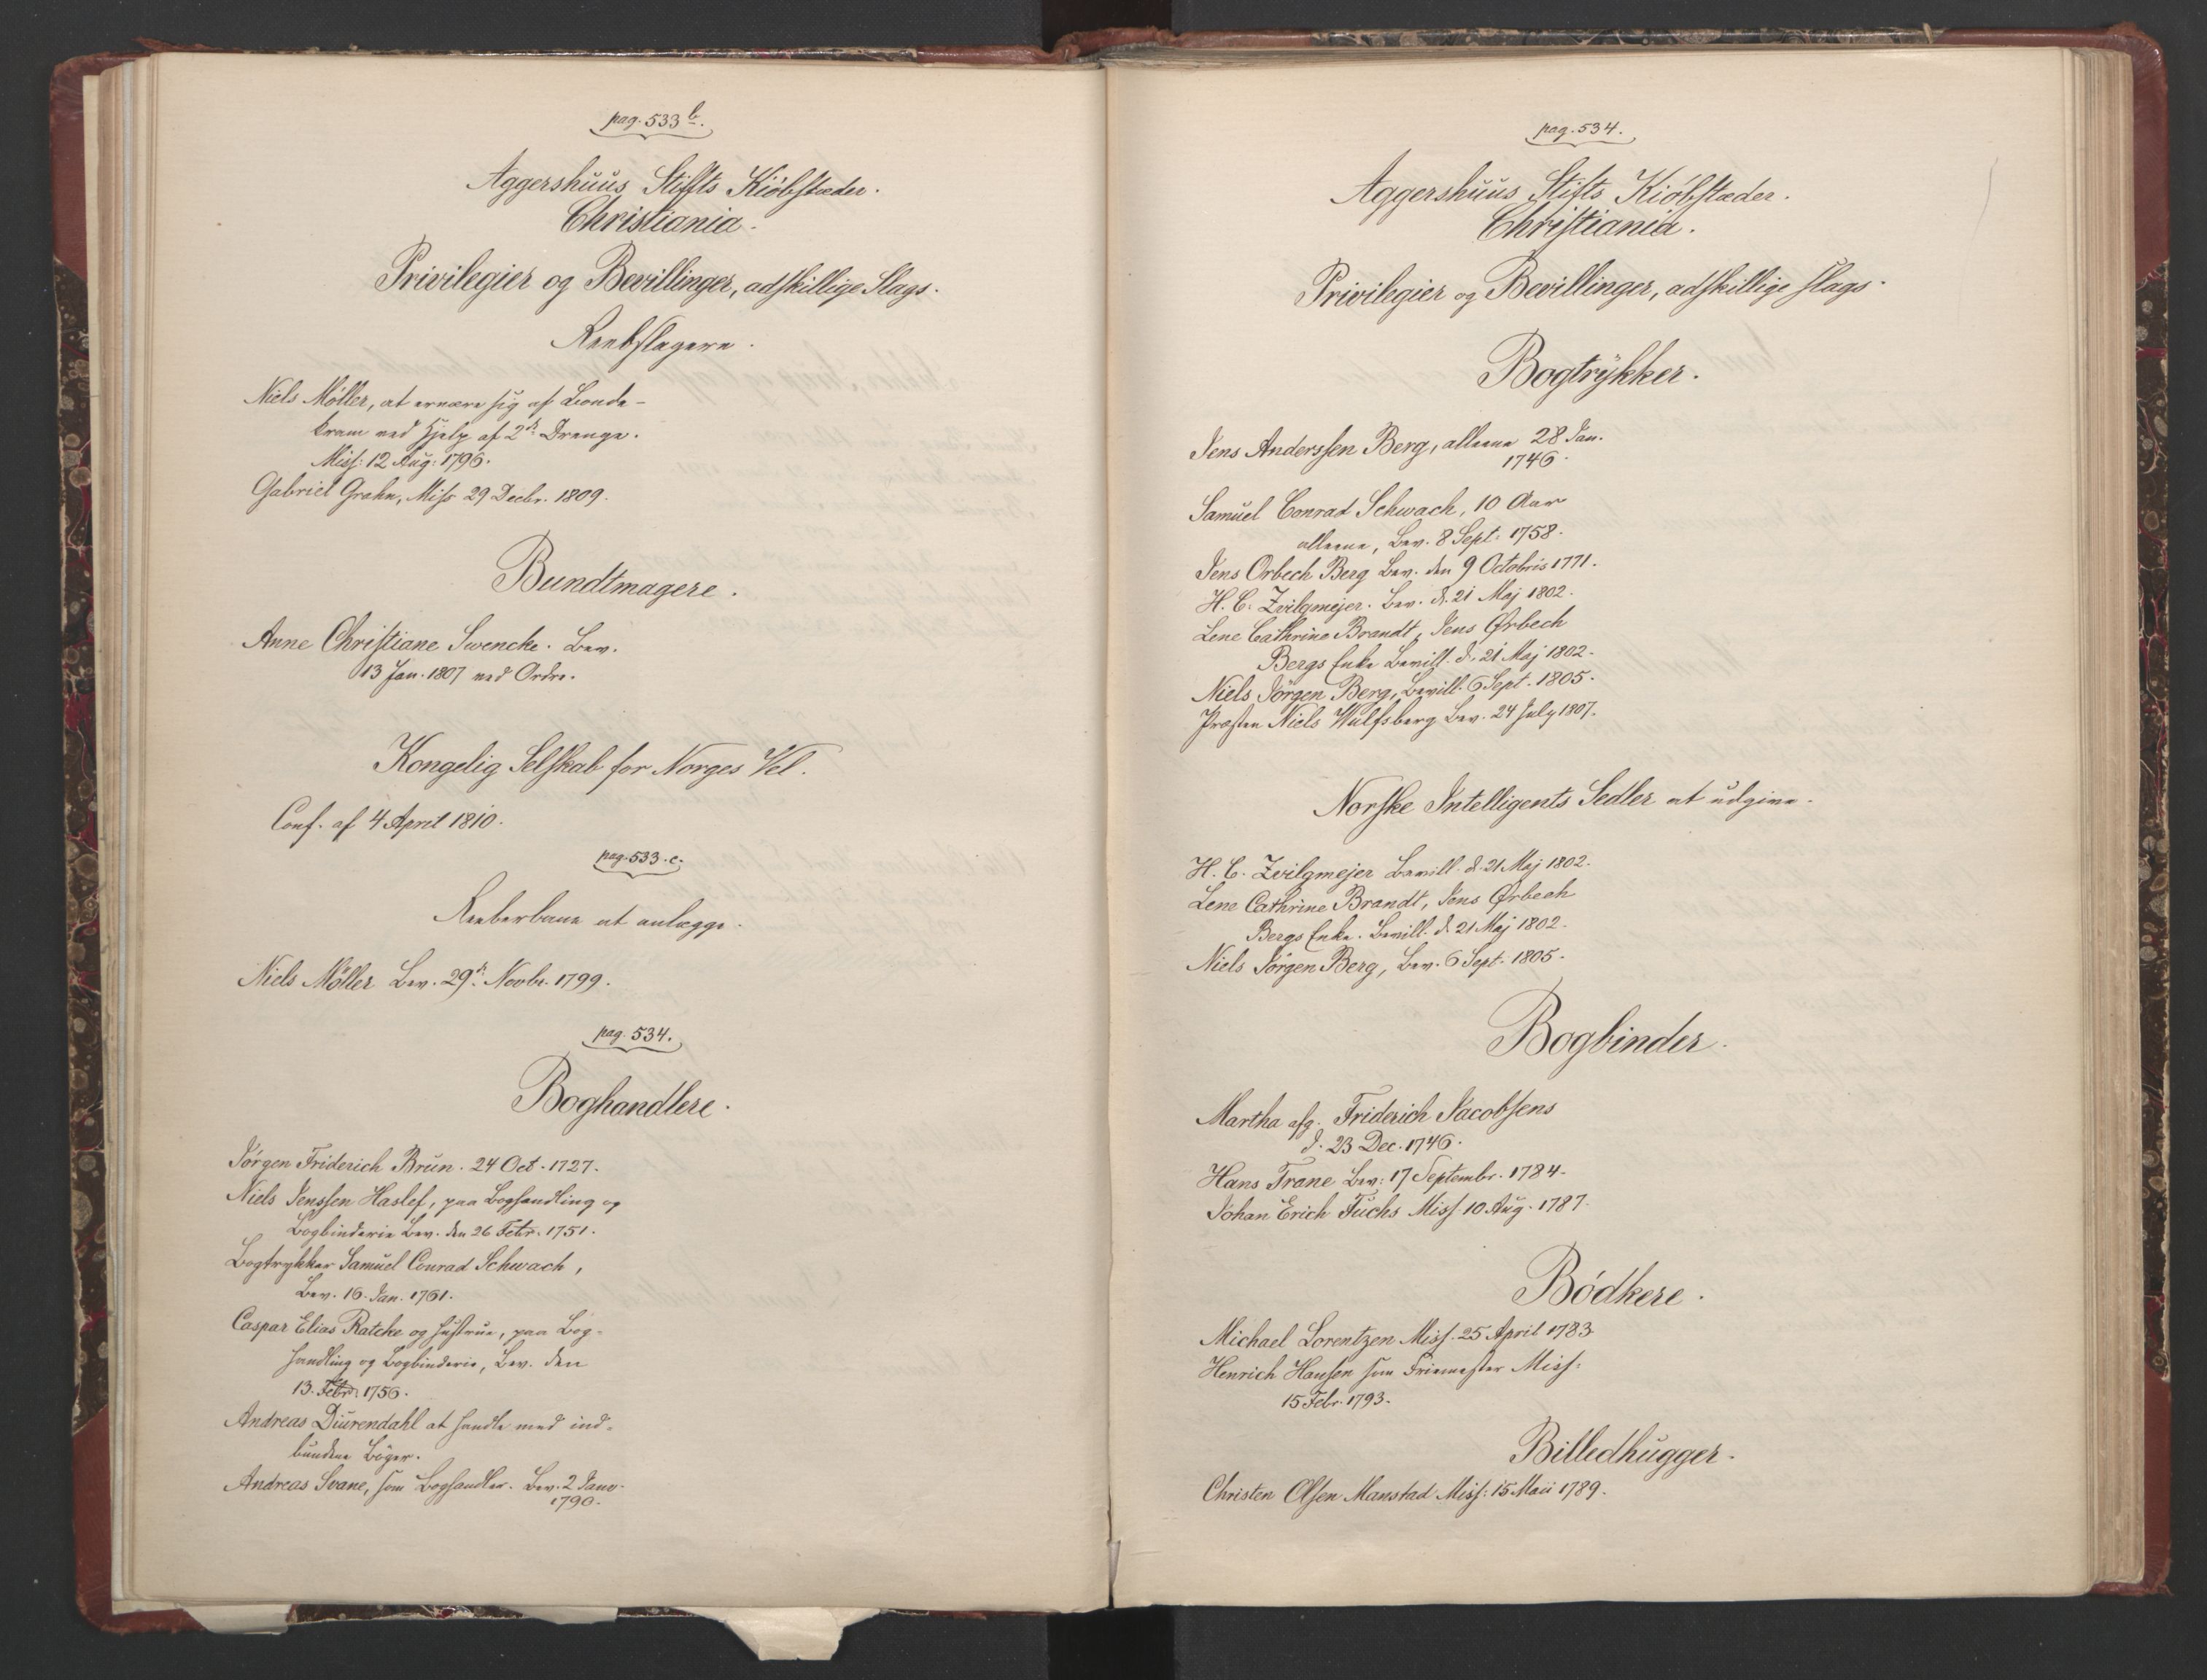 pag. 533 b.
Aggershuus Stifts Kiöbstæder.
Christiania.
Privilegier og Bevillinger, adskillige Slags.
Reebslagere.
Niels Möller, at ernære sig af Bonde-
kram ved Hjelp af 2de Drenge.
Miss: 12 Aug: 1796.
Gabriel Grahn, Miss 29 Decbr. 1809.
Bundtmagere.
Anne Christiane Swencke. Bev.
13 Jan. 1807 ved Ordre.
Kongelig Selskab for Norges Vel.
Conf. af 4 April 1810.
pag. 533.c.
Reeberbane at anlægge.
Niels Möller Bev. 29de Novbr. 1799.
pag. 534.
Boghandlere.
Jörgen Friderich Brun. 24 Oct. 1727.
Niels Jenssen Haslef, paa Boghandling og
Bogbinderie Bev. den 26 Febr. 1751.
Bogtrykker Samuel Conrad Schwach,
Bev. 16. Jan. 1761.
Caspar Elias Ratche og Hustrue, paa Bog-
handling og Bogbinderie, Bev. den
13. Febr. 1756.
Andreas Diurendahl at handle med ind-
bundne Böger.
Andreas Svane, som Boghandler. Bev. 2 Janv.
1790.
pag. 534.
Aggershuus Stifts Kiöbstæder.
Christiania.
Privilegier og Bevillinger, adskillige slags.
Bogtrÿkker.
Jens Anderssen Berg, alleene 28 Jan.
1746.
Samuel Conrad Schwach, 10 Aar
alleene, Bev. 8 Sept. 1758.
Jens Orbech Berg Bev. den 9 Octobris 1771.
H. C. Zvilgmejer. Bev. d. 21 Maj 1802.
Lene Cathrine Brandt, Jens Ørbech
Bergs Enke Bevill. d. 21 Maj 1802.
Niels Jörgen Berg, Bevill. 6 Sept. 1805.
Præsten Niels Wulfsberg Bev. 24 July 1807.
Norske Intelligents Sedler at udgive.
H. C. Zvilgmejer Bevill. d. 21 Maj 1802.
Lene Cathrine Brandt, Jens Ørbech
Bergs Enke. Bevill. d. 21 Maj 1802.
Niels Jörgen Berg, Bev. 6 Sept. 1805.
Bogbinder.
Martha afg. Friderich Jacobsens
d. 23 Dec. 1746.
Hans Trane Bev: 17 Septembr. 1784.
Johan Erich Fuchs Miss. 10 Aug. 1787.
Bödkere.
Michael Lorentzen Miss. 25 April 1783.
Henrich Hansen som Friemester Miss:
15 Febr. 1793.
Billedhugger.
Christen Olsen Manstad Miss: 15 Maii 1789.